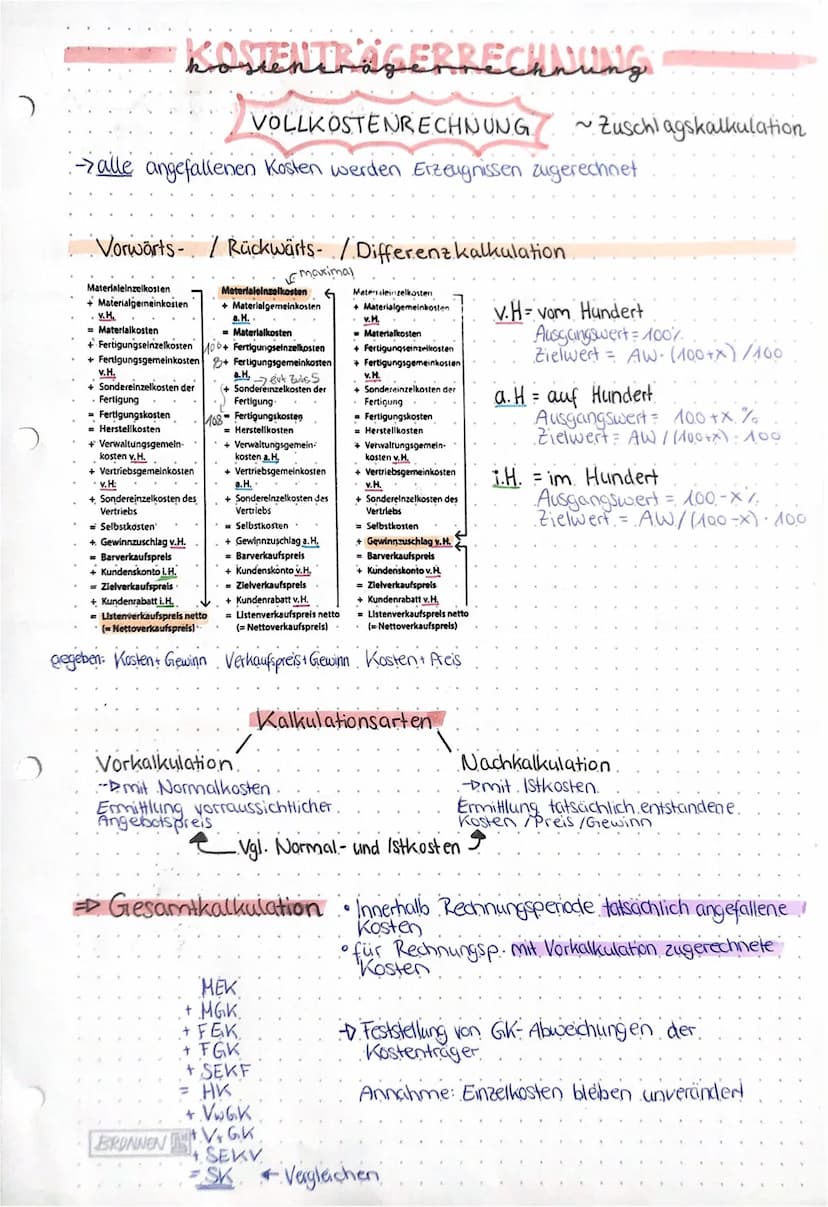 KOSTENTRÄGERRECHNUNG
kostenträgerrechnung
VOLLKOSTENRECHNUNG ~ Zuschlagskalkulation
→ alle angefallenen Kosten werden Erzeugnissen zugerechnet
Vorwärts- / Rückwärts- / Differenzkalkulation
maximal
Materialeinzelkosten
+ Materialgemeinkosten
v.H.
= Materialkosten
+ Fertigungseinzelkosten
+ Fertigungsgemeinkosten
v.H.
+ Sondereinzelkosten der
Fertigung
= Fertigungskosten
= Herstellkosten
+ Verwaltungsgemein-
kosten v.H.
+ Vertriebsgemeinkosten
v.H.
+ Sondereinzelkosten des
Vertriebs
= Selbstkosten
+ Gewinnzuschlag v.H.
= Barverkaufspreis
+ Kundenskonto i.H.
= Zielverkaufspreis
+ Kundenrabatt i.H.
= Listenverkaufspreis netto
(= Nettoverkaufspreis)
Materialeinzelkosten
+ Materialgemeinkosten
a.H.
= Materialkosten
100 + Fertigungseinzelkosten
8 + Fertigungsgemeinkosten
a.H.
+ Sondereinzelkosten der
Fertigung
108 = Fertigungskosten
= Herstellkosten
+ Verwaltungsgemein-
kosten a.H.
+ Vertriebsgemeinkosten
a.H.
+ Sondereinzelkosten des
Vertriebs
= Selbstkosten
+ Gewinnzuschlag a.H.
= Barverkaufspreis
+ Kundenskonto v.H.
= Zielverkaufspreis
+ Kundenrabatt v.H.
= Listenverkaufspreis netto
(= Nettoverkaufspreis)
Materialeinzelkosten
+ Materialgemeinkosten
v.H.
= Materialkosten
+ Fertigungseinzelkosten
+ Fertigungsgemeinkosten
v.H.
+ Sondereinzelkosten der
Fertigung
= Fertigungskosten
= Herstellkosten
+ Verwaltungsgemein-
kosten v.H.
+ Vertriebsgemeinkosten
v.H.
+ Sondereinzelkosten des
Vertriebs
= Selbstkosten
+ Gewinnzuschlag v.H.
= Barverkaufspreis
+ Kundenskonto v.H.
= Zielverkaufspreis
+ Kundenrabatt v.H.
= Listenverkaufspreis netto
(= Nettoverkaufspreis)
v.H = vom Hundert
Ausgangswert = 100%
Zielwert = AW · (100+x) / 100
a.H = auf Hundert
Ausgangswert = 100 + x %
Zielwert = AW / (100+x) · 100
i.H. = im Hundert
Ausgangswert = 100 - x %
Zielwert = AW / (100 - x) · 100
gegeben: Kosten + Gewinn Verkaufspreis + Gewinn Kosten + Preis
Kalkulationsarten
Vorkalkulation
→ mit Normalkosten
Ermittlung vorraussichtlicher
Angebotspreis
Nachkalkulation
→ mit Istkosten
Ermittlung tatsächlich entstandene
Kosten / Preis / Gewinn
Vgl. Normal- und Istkosten
⇒ Gesamtkalkulation
• Innerhalb Rechnungsperiode tatsächlich angefallene
Kosten
• für Rechnungsp. mit Vorkalkulation zugerechnete
Kosten
MEK
+ MGK
+ FEK
+ FGK
+ SEKF
= HK
+ VwGK
+ VtGK
+ SEKV
= SK ← Vergleichen
→ Feststellung von GK- Abweichungen der
Kostenträger
Annahme: Einzelkosten bleiben unverändert
BRUNNEN